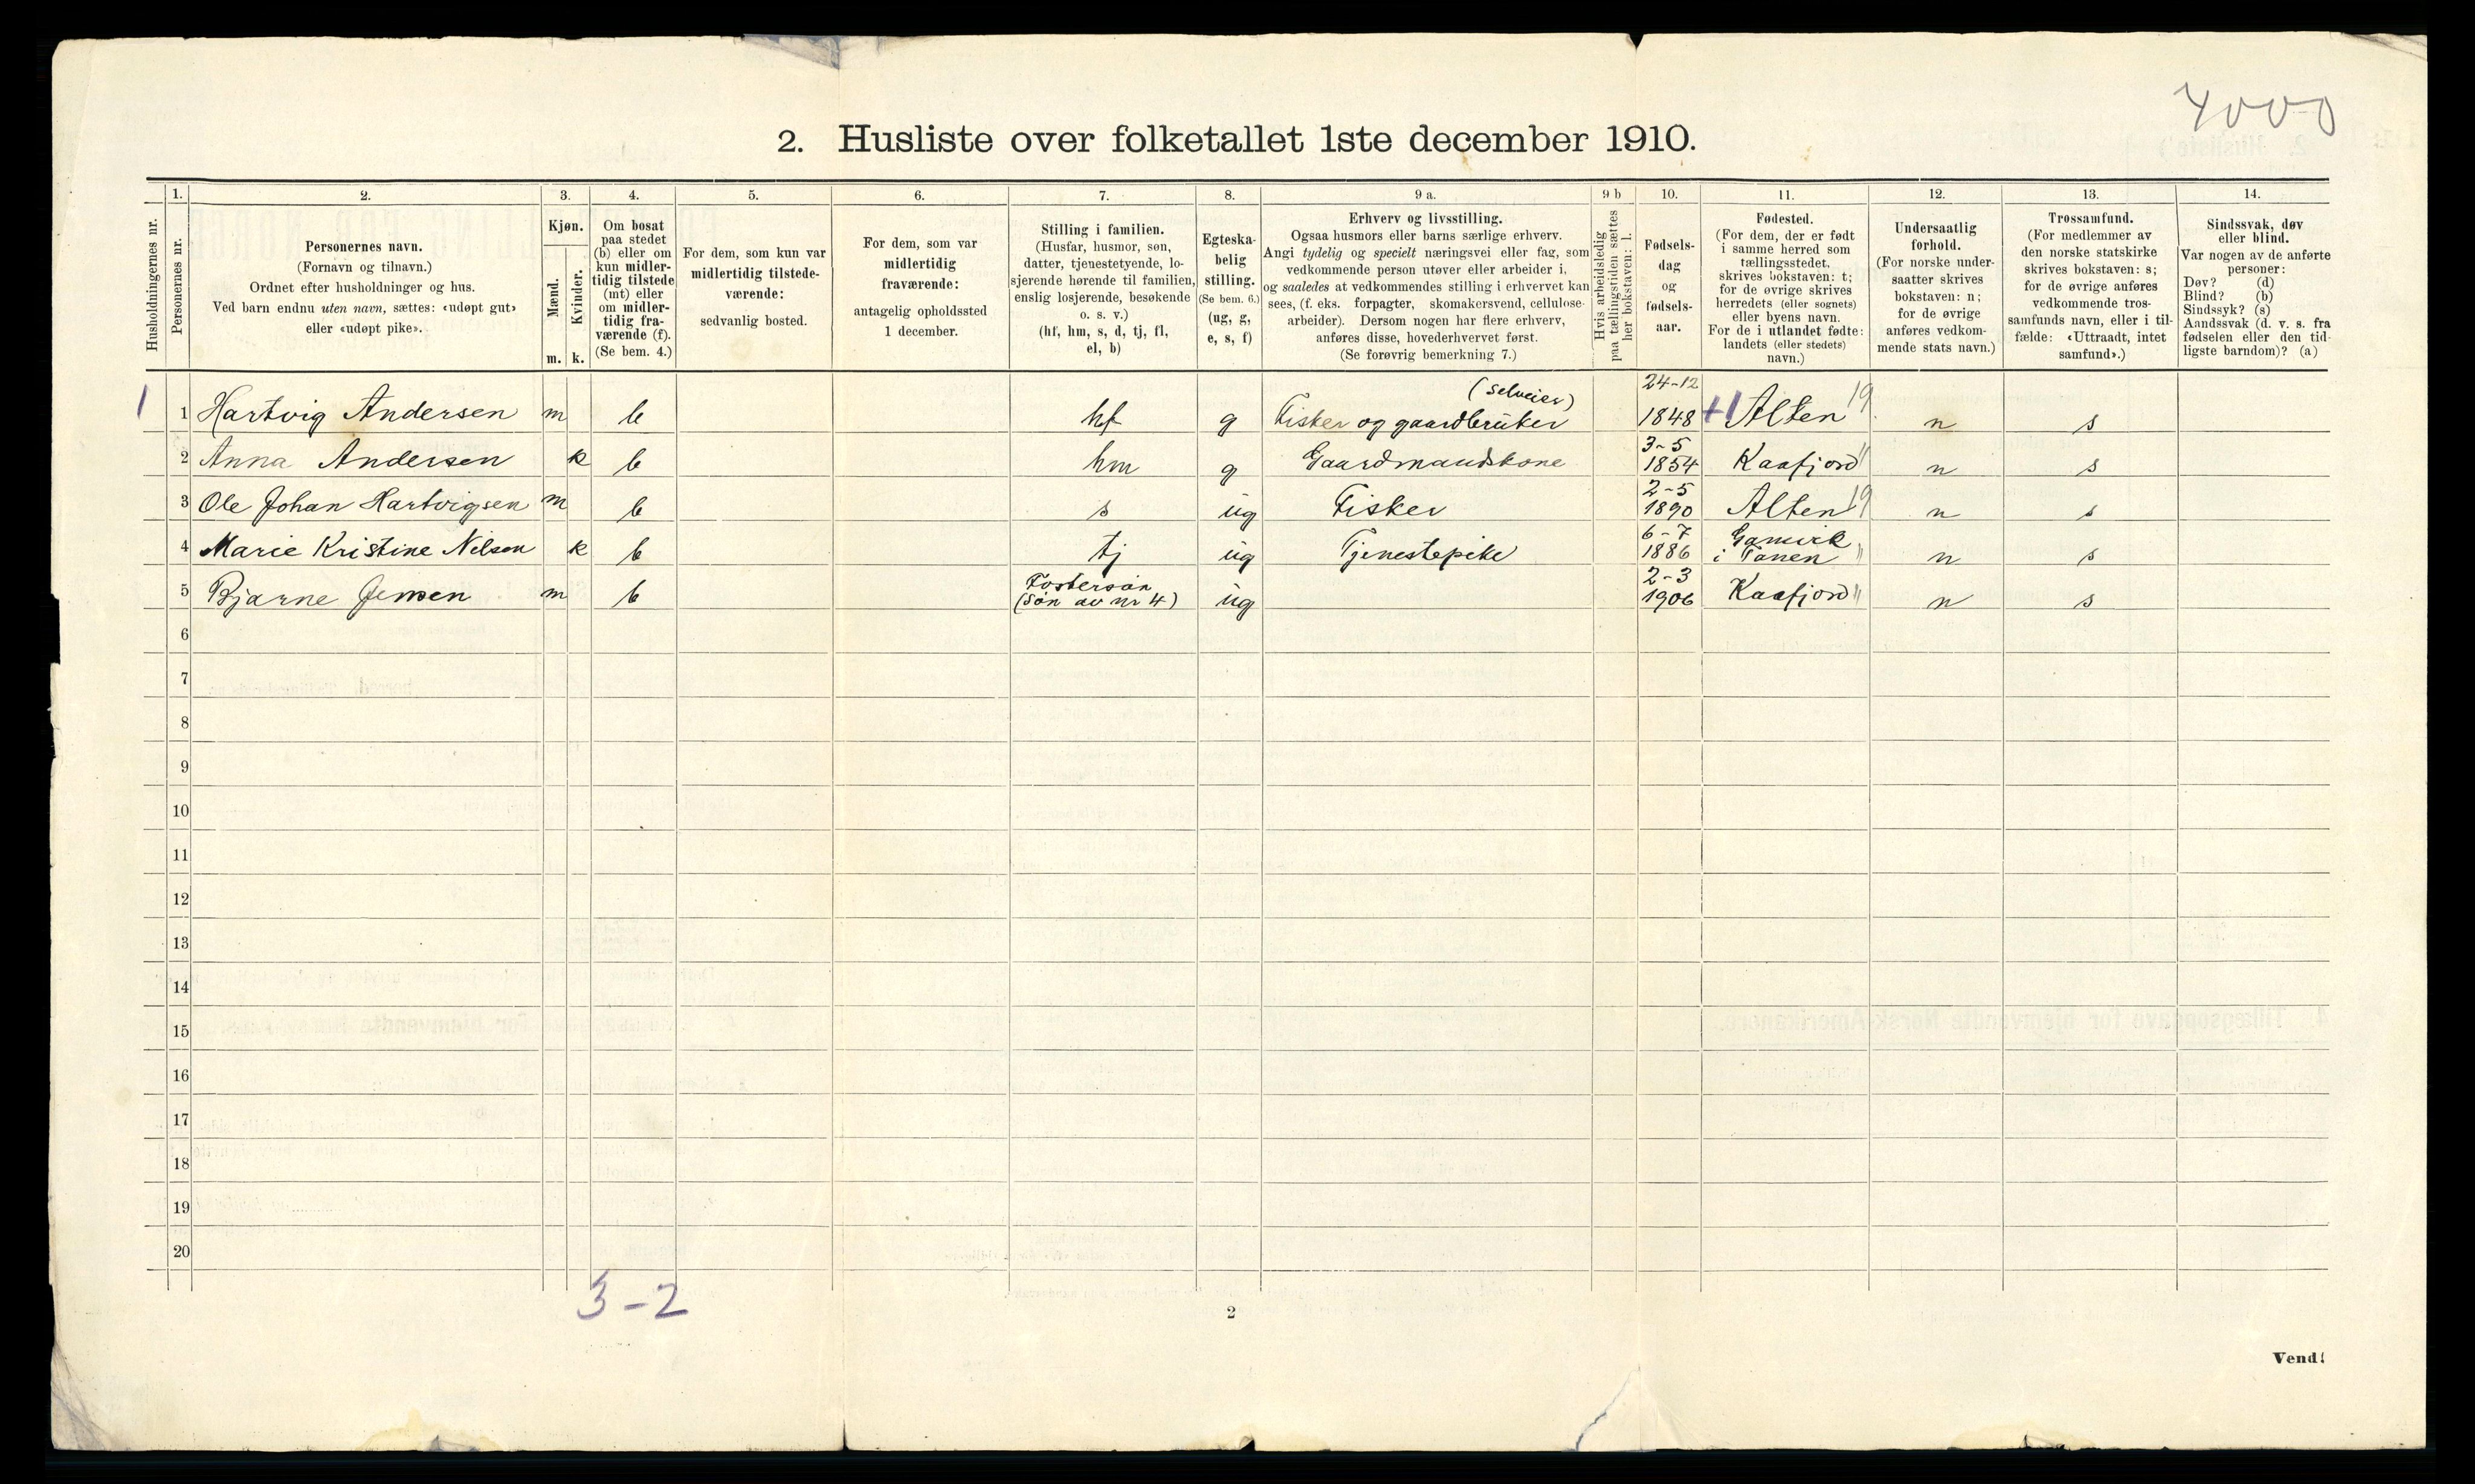 4000
2. Husliste over folketallet 1ste december 1910.
Husholdningernes nr.
1.
Personernes nr.
2.
Personernes navn.
(Fornavn og tilnavn.)
Ordnet efter husholdninger og hus.
Ved barn endnu uten navn, sættes: «udøpt gut»
eller «udøpt pike».
3.
Kjøn.
Mænd.
Kvinder.
m. k.
4.
Om bosat
paa stedet
(b) eller om
kun midler-
tidig tilstede
(mt) eller
om midler-
tidig fra-
værende (f).
(Se bem. 4.)
5.
For dem, som kun var
midlertidig tilstede-
værende:
sedvanlig bosted.
6.
For dem, som var
midlertidig
fraværende:
antagelig opholdssted
1 december.
7.
Stilling i familien.
(Husfar, husmor, søn,
datter, tjenestetyende, lo-
sjerende hørende til familien,
enslig losjerende, besøkende
o. s. v.)
(hf, hm, s, d, tj, fl,
el, b)
8.
Egteska-
belig
stilling.
(Se bem. 6.)
(ug, g,
e, s, f)
9 a.
Erhverv og livsstilling.
Ogsaa husmors eller barns særlige erhverv.
Angi tydelig og specielt næringsvei eller fag, som
vedkommende person utøver eller arbeider i,
og saaledes at vedkommendes stilling i erhvervet kan
sees, (f. eks. forpagter, skomakersvend, cellulose-
arbeider). Dersom nogen har flere erhverv,
anføres disse, hovederhvervet først.
(Se forøvrig bemerkning 7.)
9 b
Hvis arbeidsledig
paa tællingstiden sættes
her bokstaven: l.
10.
Fødsels-
dag
og
fødsels-
aar.
11.
Fødested.
(For dem, der er født
i samme herred som
tællingsstedet,
skrives bokstaven: t;
for de øvrige skrives
herredets (eller sognets)
eller byens navn.
For de i utlandet fødte:
landets (eller stedets)
navn.)
12.
Undersaatlig
forhold.
(For norske under-
saatter skrives
bokstaven: n;
for de øvrige
anføres vedkom-
mende stats navn.)
13.
Trossamfund.
(For medlemmer av
den norske statskirke
skrives bokstaven: s;
for de øvrige anføres
vedkommende tros-
samfunds navn, eller i til-
fælde: «Uttraadt, intet
samfund».)
14.
Sindssvak, døv
eller blind.
Var nogen av de anførte
personer:
Døv? (d)
Blind? (b)
Sindssyk? (s)
Aandssvak (d. v. s. fra
fødselen eller den tid-
ligste barndom)? (a)
1 1 Hartvig Andersen m b hf g Fisker og gaardbruker (selveier) 24-12 1848 +1 Alten 19 n s
2 Anna Andersen k b hm g Gaardmandskone 3-5 1854 Kaafjord " n s
3 Ole Johan Hartvigsen m b s ug Fisker 2-5 1890 Alten 19 n s
4 Marie Kristine Nelsen k b tj ug Tjenestepike 6-7 1886 Gamvik i Tanen " n s
5 Bjarne Jensen m b Fostersøn (søn av nr 4) ug 2-3 1906 Kaafjord " n s
6
7
8
9
10
11
12
13
14
15
16
17
18
19
20
3-2
2
Vend!